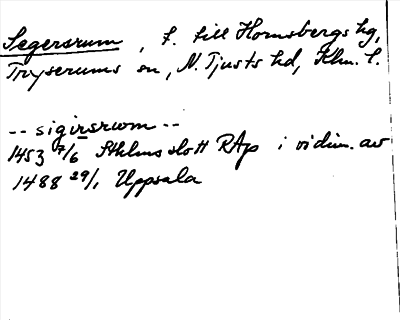 Segersrum, f. till Hornsbergs hg,
Tryserums sn, N. Tjusts hd, Klm. l.
-- sigirsrwm --
1453 7/6 Sthlms slott RAp i vidim. av
1488 29/1 Uppsala